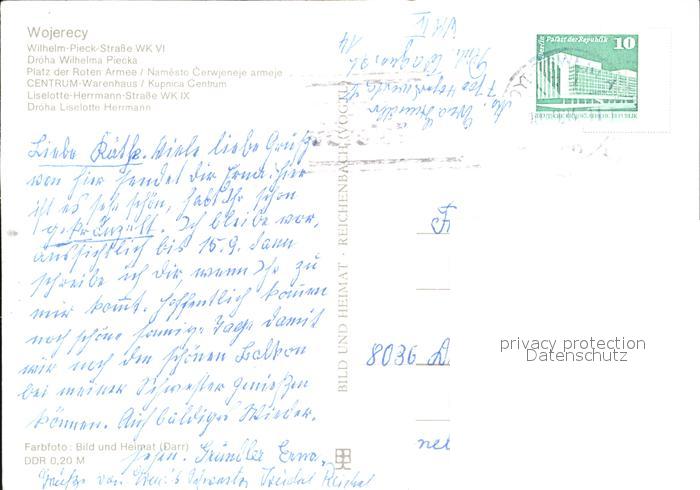 Wojerecy
Wilhelm-Pieck-Straße WK VI
Dróha Wilhelma Piecka
Platz der Roten Armee / Naměsto Čerwjeneje armeje
CENTRUM-Warenhaus / Kupnica Centrum
Liselotte-Herrmann-Straße WK IX
Dróha Liselotte Herrmann
Liebe Käthe. Viele liebe Grüße
von hier sendet dir Erna. Hier
ist es sehr schön, habt Ihr schon
gekränzelt. Ich bleibe vor,
aussichtlich bis 15.9. Dann
schreibe ich dir wenn Ihr zu
mir kommt. Hoffentlich kommen
noch schöne sonnige Tage damit
wir noch den schönen Balkon
bei meiner Schwester genießen
können. Auf baldiges Wieder.
sehen. Gründler Erna.
Grüße von Schwester Reichel
Farbfoto: Bild und Heimat (Darr)
DDR 0,20 M
BILD UND HEIMAT · REICHENBACH (VOGTL)
14
Berlin, Palast der Republik
10
DEUTSCHE DEMOKRATISCHE REPUBLIK
8036 D
privacy protection
Datenschutz